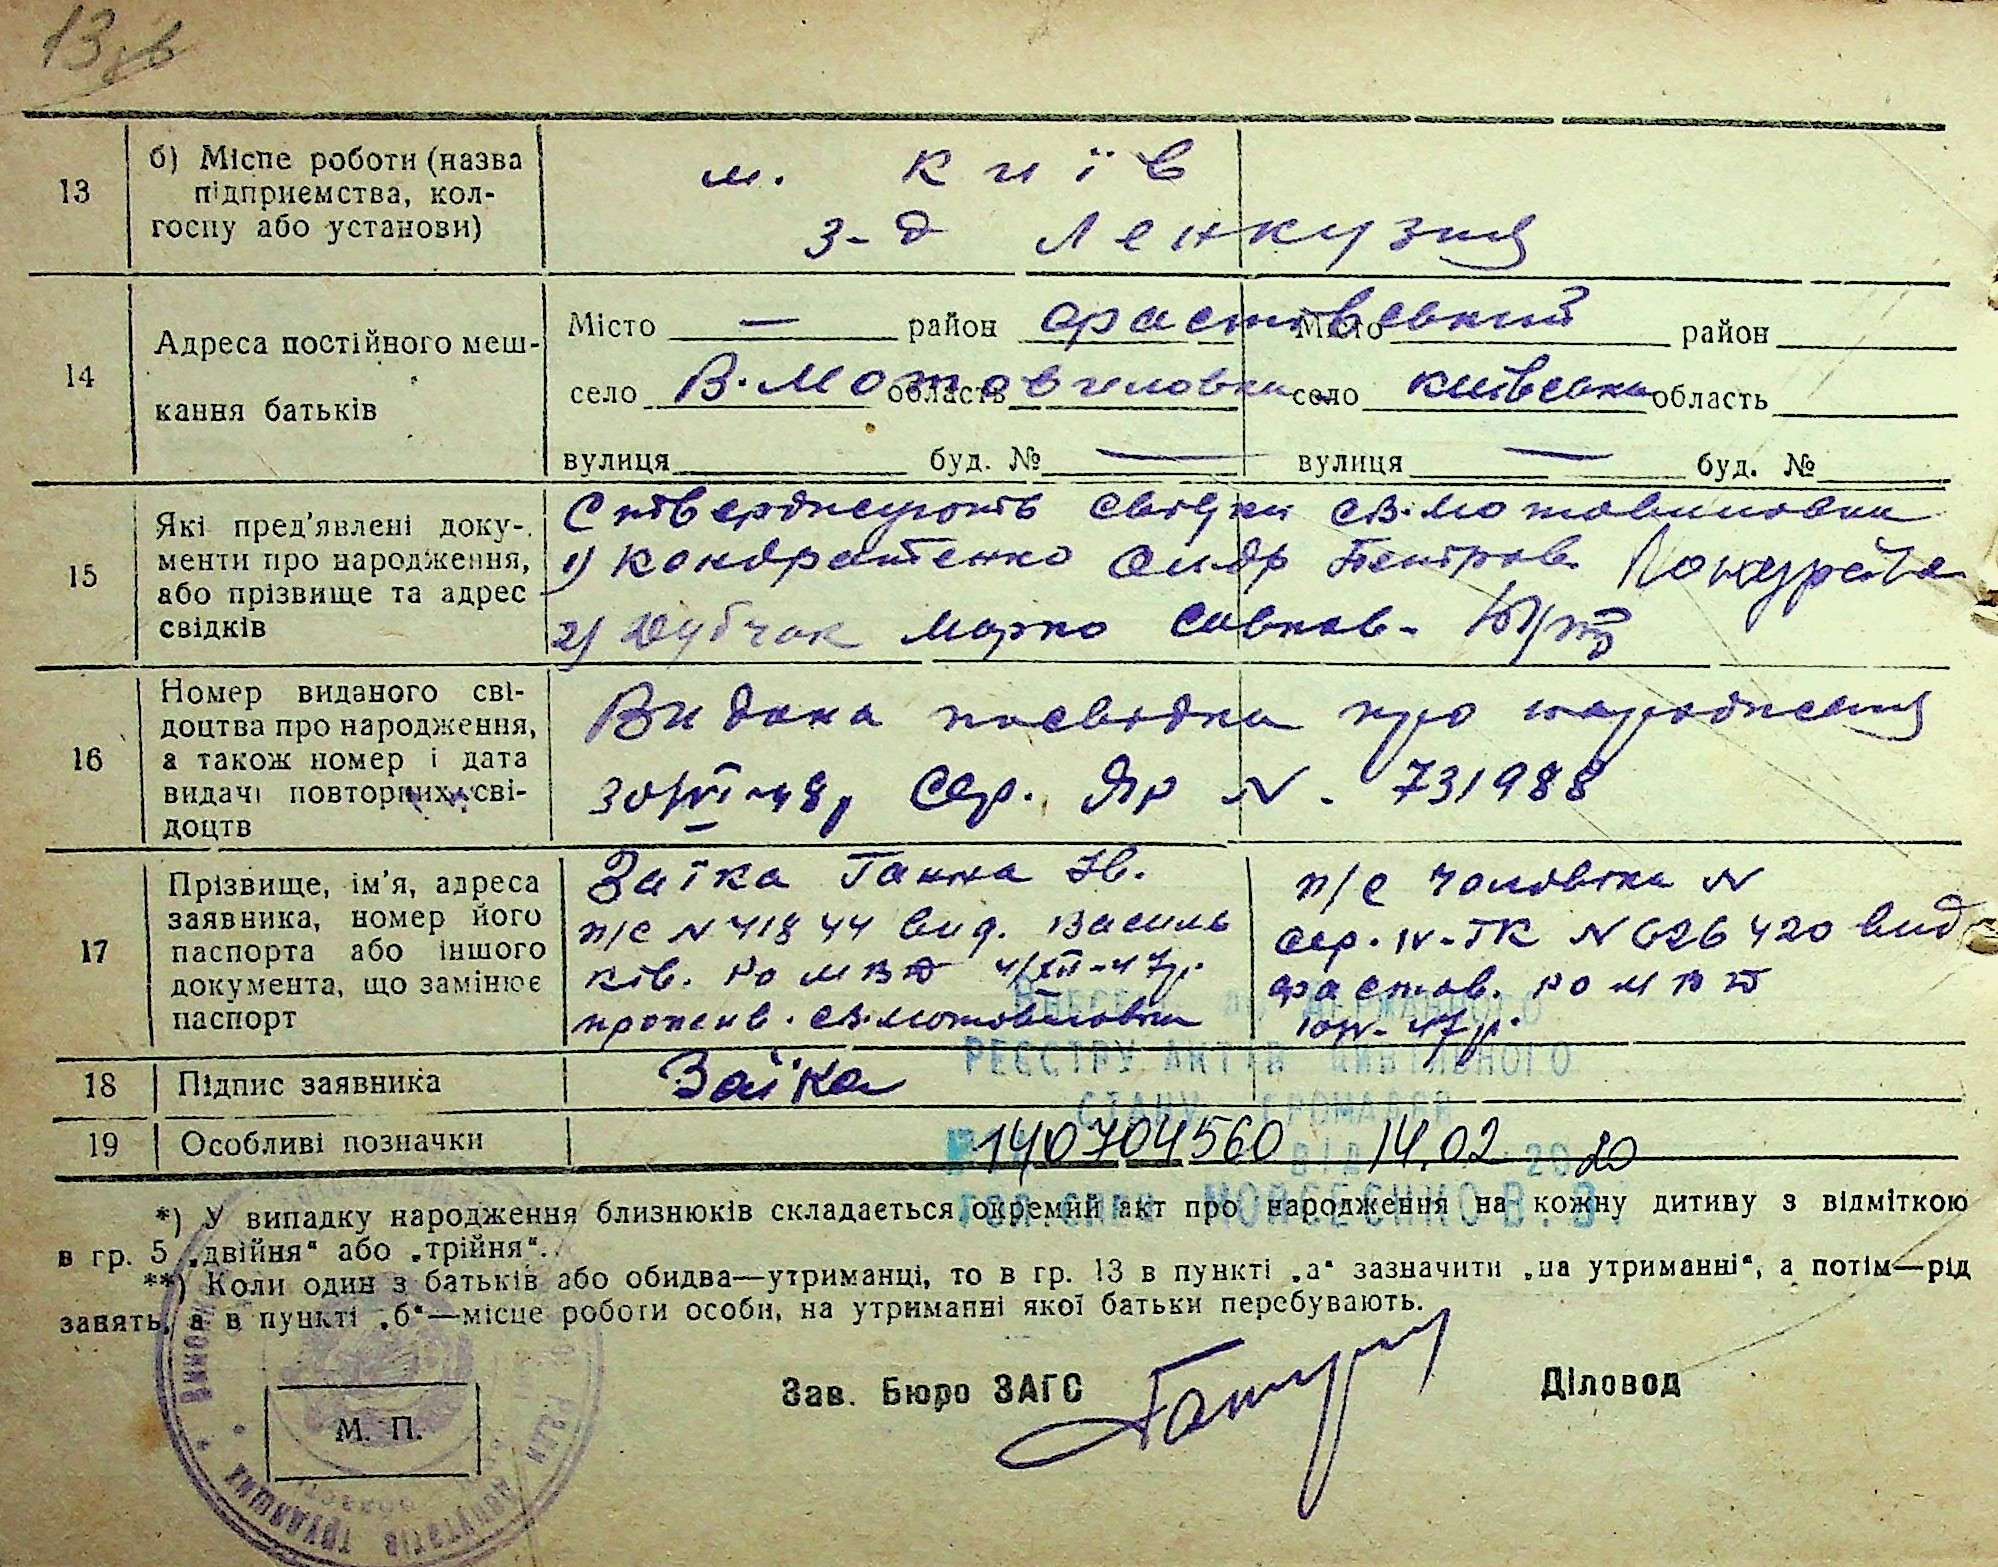 13 зв
13
б) Місце роботи (назва
підприємства, кол-
госпу або установи)
м. Київ
з-д Ленкузня
14
Адреса постійного меш-
кання батьків
Місто — район Фастівський Місто район
село В. Мотовиловка область село Київська область
вулиця буд. № — вулиця — буд. №
15
Які пред'явлені доку-
менти про народження,
або прізвище та адрес
свідків
Стверджують свідки с В. Мотовиловки
1) Кондратенко Сидр Петров.
2) Дубчак Марко Савков.
16
Номер виданого сві-
доцтва про народження,
а також номер і дата
видачі повторних сві-
доцтв
Видана посвідка про народження
30/VI-48р Сер. ЯР N. 731988
17
Прізвище, ім'я, адреса
заявника, номер його
паспорта або іншого
документа, що замінює
паспорт
Заїка Ганна Ів.
п/с N 41844 вид. Василь
ків. РО МВД 4/XII-47р.
прожив. с В. Мотовиловка
п/с чоловіка N
сер. IV-ТК N 626420 вид
Фастов. РО МВД
47р.
18
Підпис заявника
Заїка
19
Особливі позначки
ВНЕСЕНО ДО ДЕРЖАВНОГО
РЕЄСТРУ АКТІВ ЦИВІЛЬНОГО
СТАНУ ГРОМАДЯН
№ 140704560 ВІД 14.02 2020
МОЙСЕЄНКО В. В.
*) У випадку народження близнюків складається окремий акт про народження на кожну дитину з відміткою
в гр. 5 „двійня“ або „трійня“.
**) Коли один з батьків або обидва—утриманці, то в гр. 13 в пункті „а“ зазначити „на утриманні“, а потім—рід
занять, а в пункті „б“—місце роботи особи, на утриманні якої батьки перебувають.
М. П.
Зав. Бюро ЗАГС
Діловод